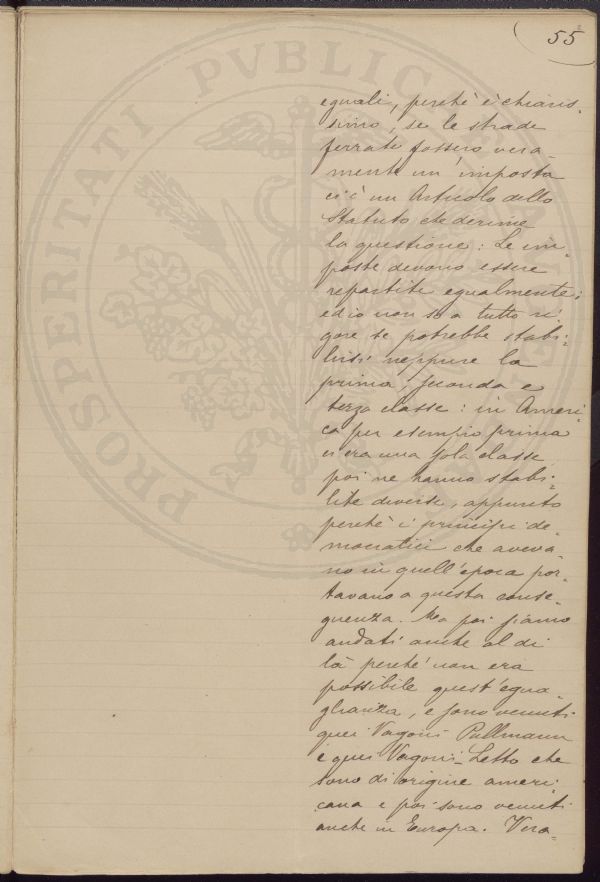 55
eguali, perchè è chiaris-
simo, se le strade
ferrate fossero vera-
mente un'imposta
ci è un Articolo dello
Statuto che derime
la questione: Le im-
poste devono essere
repartite egualmente;
ed io non so a tutto ri-
gore se potrebbe stabi-
lirsi neppure la
prima, seconda e
terza classe: in Ameri-
ca per esempio prima
vi era una sola classe
poi ne hanno stabi-
lite diverse, appunto
perchè i principi de-
mocratici che aveva-
no in quell'epoca por-
tavano a questa conse-
guenza. Ma poi siamo
andati anche al di
là perchè non era
possibile quest'egua-
glianza, e sono venuti
quei Vagoni Pullmann
e quei Vagoni-Letto che
sono di origine ameri-
cana e poi sono venuti
anche in Europa. Vera-
PROSPERITATI PVBLICAE